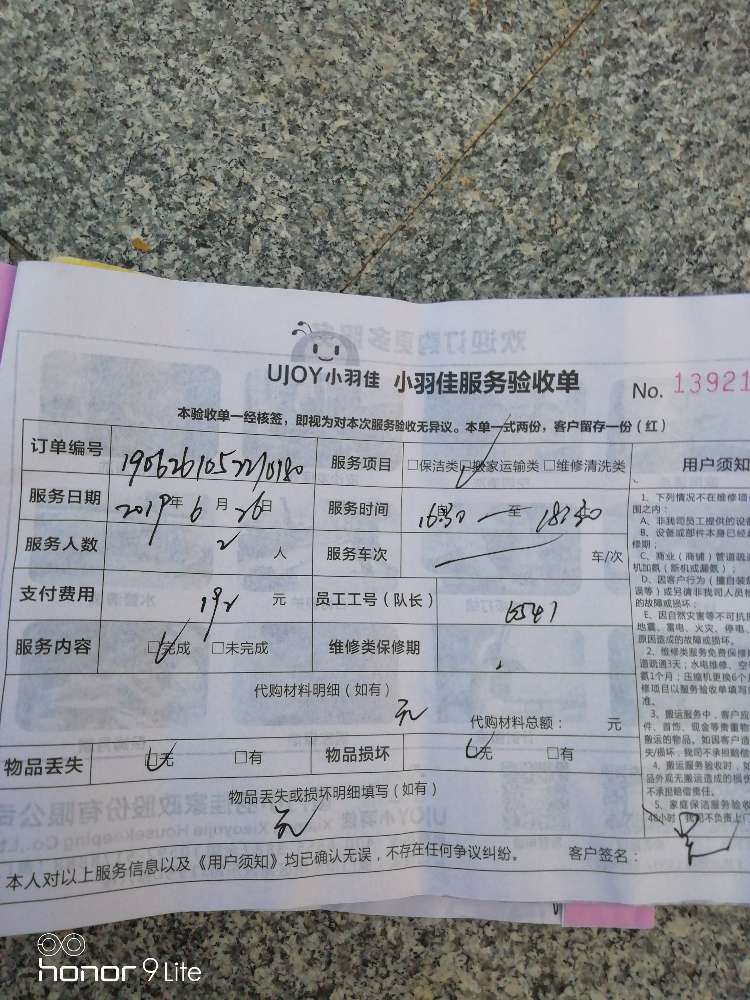 UJOY小羽佳 小羽佳服务验收单 No. 13921
本验收单一经核签，即视为对本次服务验收无异议。本单一式两份，客户留存一份（红）
订单编号 服务项目 □保洁类□搬家运输类□维修清洗类 用户须知
服务日期 2019年6月26日 服务时间 至
服务人数 2人 服务车次 车/次
支付费用 192元 员工工号（队长） 6541
服务内容 □完成 □未完成 维修类保修期
代购材料明细（如有）
无
代购材料总额： 元
物品丢失 □无 □有 物品损坏 □无 □有
物品丢失或损坏明细填写（如有）
无
本人对以上服务信息以及《用户须知》均已确认无误，不存在任何争议纠纷。 客户签名：
1、下列情况不在维修项
围之内：
A、非我司员工提供的设
B、设备或部件本身已经
修期；
C、商业（商铺）管道疏
机加氟（断机或漏氟）；
D、因客户行为（擅自装
误等）或另请非我司人员
的故障或损坏；
E、因自然灾害等不可抗
地震、雷电、火灾、停电、
原因造成的故障或损坏。
2、维修类服务免费保修
道疏通3天；水电维修、空
氟1个月；压缩机更换6个月
修项目以服务验收单填写
准。
3、搬运服务中，客户应
件、首饰、现金等贵重物
搬运的物品。如因客户造
失/损坏，我司不承担赔偿
4、搬运服务验收时，如
品外观无搬运造成的损
不承担赔偿责任。
5、家庭保洁服务验收
48小时，我司不负责上门
honor 9 Lite